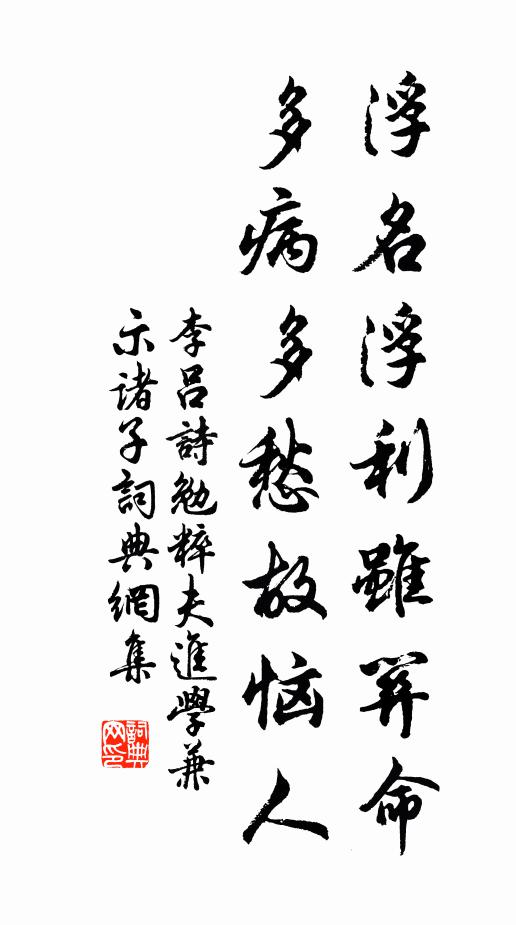 浮名浮利雖關命
多病多愁故恼人
李吕詩勉粹夫進學兼
示诸子詞典網集
詞典網印